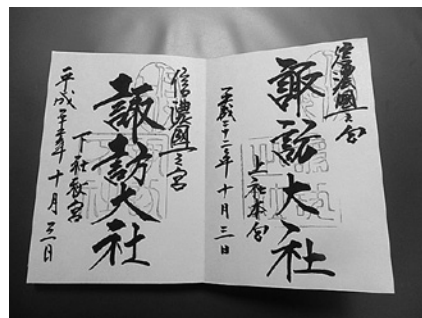 信濃國一之宮
諏訪大社
上社本宮
平成二十二年 十月三日
信濃國一之宮
諏訪大社
下社秋宮
平成 年 十月三日